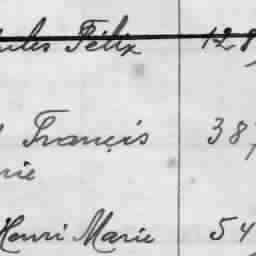 Félix 128
François 38
rie
Henri Marie 54